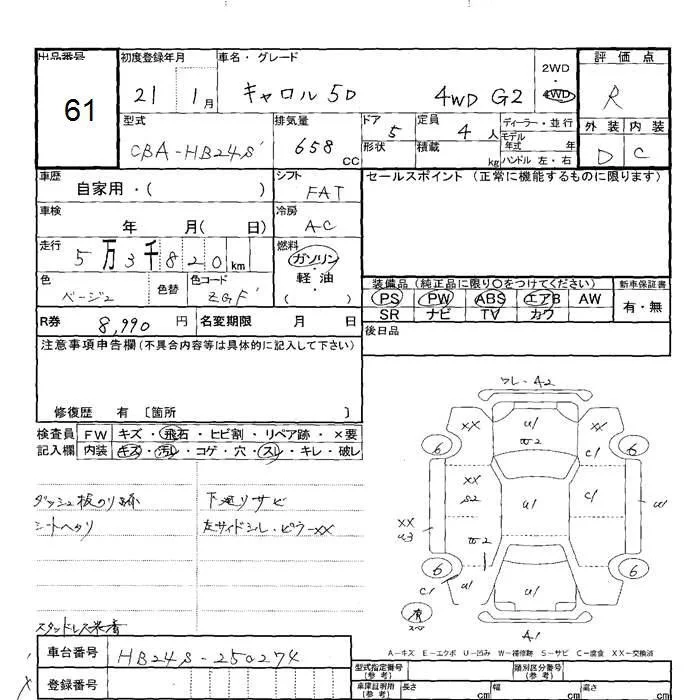 出品番号
61
初度登録年月
21 1月
車名・グレード
キャロル 5D 4WD G2
2WD・4WD
評価点
R
外装 内装
D C
型式
CBA-HB24S
排気量
658 CC
ドア
5
形状
定員
4人
積載
kg
ディーラー・並行
モデル年式 年
ハンドル 左・右
車歴
自家用・( )
シフト
FAT
セールスポイント (正常に機能するものに限ります)
車検
年 月( 日)
冷房
A-C
走行
5万3千820km
燃料
ガソリン・軽油・( )
色
ベージュ
色替
色コード
ZGF
装備品 (純正品に限り○をつけてください)
PS PW ABS エアB AW
SR ナビ TV カワ
新車保証書
有・無
R券 8,990円
名変期限 月 日
後日品
注意事項申告欄(不具合内容等は具体的に記入して下さい)
修復歴 有 〔箇所 〕
検査員記入欄
FW キズ・飛石・ヒビ割・リペア跡・×要
内装 キズ・汚レ・コゲ・穴・スレ・キレ・破レ
ダッシュ板のり跡
シートヘタリ
下廻りサビ
左サイドシル・ピラーXX
スタッドレス装着
フレ-A2
XX U1 XX
W2
6 6
C1
XX
S2 U1 C1
XX
U3
U1
W2
6 6
C1 U1 U1 U1
有
スペア
A1
A-キズ E-エクボ U-凹み W-補修跡 S-サビ C-腐食 XX-交換済
車台番号
HB24S-250274
登録番号
型式指定番号
(参考)
類別区分番号
(参考)
車庫証明用
(参考)
長さ cm
幅 cm
高さ cm